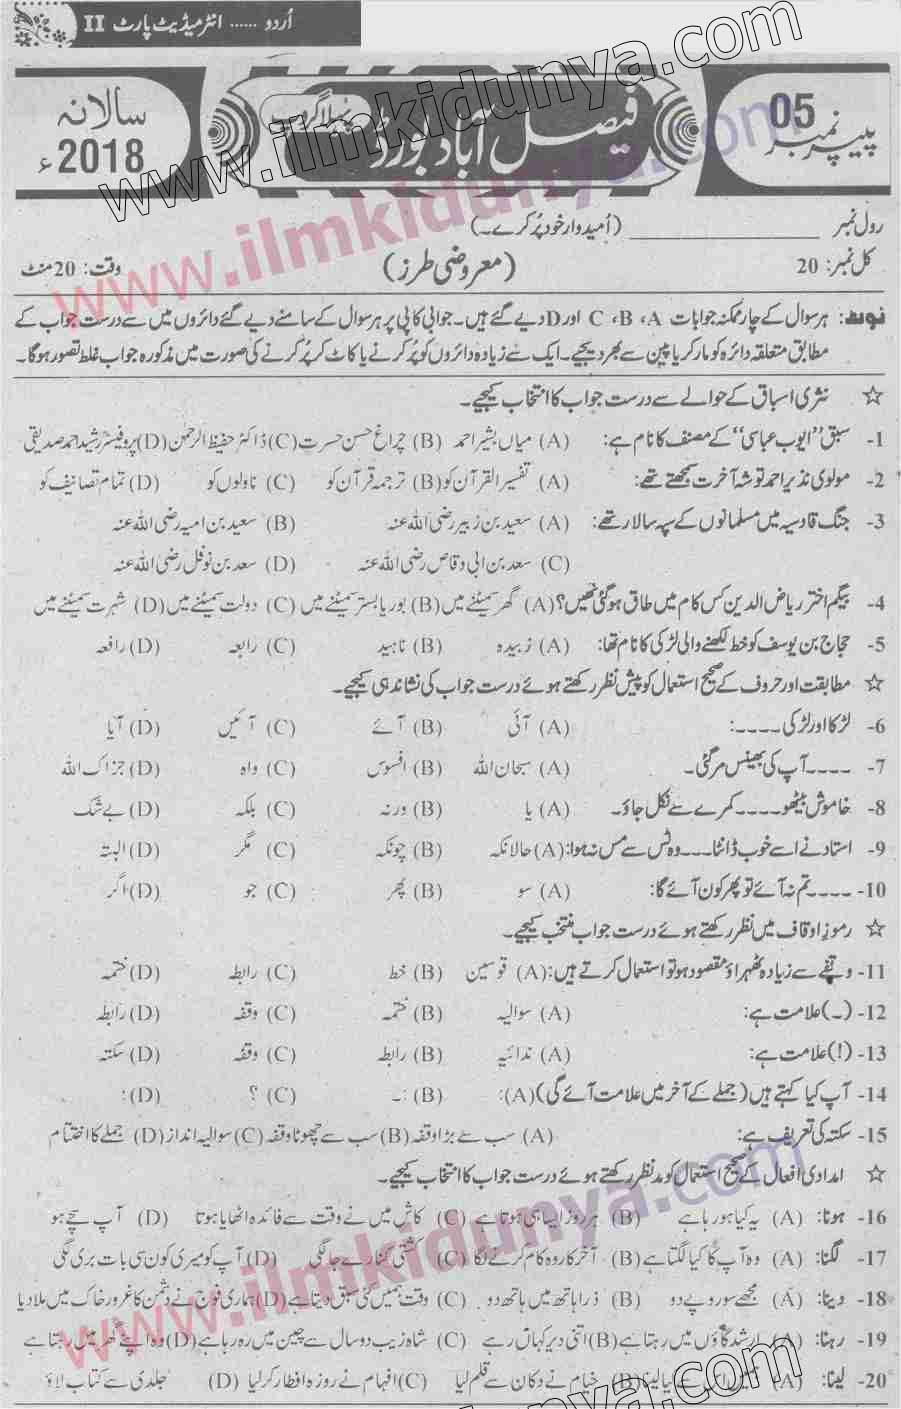 اُردو ...... انٹرمیڈیٹ پارٹ II
پیپر نمبر 05
فیصل آباد بورڈ
پہلا گروپ
سالانہ 2018ء
رول نمبر ____________ (اُمیدوار خود پُر کرے۔)
کل نمبر: 20 (معروضی طرز) وقت: 20 منٹ
نوٹ: ہر سوال کے چار ممکنہ جوابات A، B، C اور D دیے گئے ہیں۔ جوابی کاپی پر ہر سوال کے سامنے دیے گئے دائروں میں سے درست جواب کے
مطابق متعلقہ دائرہ کو مارکر یا پین سے بھر دیجیے۔ ایک سے زیادہ دائروں کو پُر کرنے یا کاٹ کر پُر کرنے کی صورت میں مذکورہ جواب غلط تصور ہوگا۔
☆ نثری اسباق کے حوالے سے درست جواب کا انتخاب کیجیے۔
1- سبق "ایوب عباسی" کے مصنف کا نام ہے: (A) میاں بشیر احمد (B) چراغ حسن حسرت (C) ڈاکٹر حفیظ الرحمٰن (D) پروفیسر رشید احمد صدیقی
2- مولوی نذیر احمد توشۂ آخرت سمجھتے تھے: (A) تفسیر القرآن کو (B) ترجمہ قرآن کو (C) ناولوں کو (D) تمام تصانیف کو
3- جنگ قادسیہ میں مسلمانوں کے سپہ سالار تھے: (A) سعید بن زبیر رضی اللہ عنہ (B) سعید بن امیہ رضی اللہ عنہ
(C) سعد بن ابی وقاص رضی اللہ عنہ (D) سعد بن نوفل رضی اللہ عنہ
4- بیگم اختر ریاض الدین کس کام میں طاق ہو گئی تھیں؟ (A) گھر سمیٹنے میں (B) بوریا بستر سمیٹنے میں (C) دولت سمیٹنے میں (D) شہرت سمیٹنے میں
5- حجاج بن یوسف کو خط لکھنے والی لڑکی کا نام تھا: (A) زبیدہ (B) ناہید (C) رابعہ (D) رافعہ
☆ مطابقت اور حروف کے صحیح استعمال کو پیش نظر رکھتے ہوئے درست جواب کی نشاندہی کیجیے۔
6- لڑکا اور لڑکی ۔۔۔۔: (A) آئی (B) آئے (C) آئیں (D) آیا
7- ۔۔۔۔ آپ کی بھینس مر گئی۔ (A) سبحان اللہ (B) افسوس (C) واہ (D) جزاک اللہ
8- خاموش بیٹھو ۔۔۔۔ کمرے سے نکل جاؤ۔ (A) یا (B) ورنہ (C) بلکہ (D) بے شک
9- استاد نے اسے خوب ڈانٹا ۔۔۔۔ وہ ٹس سے مس نہ ہوا: (A) حالانکہ (B) چونکہ (C) مگر (D) البتہ
10- ۔۔۔۔ تم نہ آئے تو پھر کون آئے گا: (A) سو (B) پھر (C) جو (D) اگر
☆ رموزِ اوقاف میں نظر رکھتے ہوئے درست جواب منتخب کیجیے۔
11- وقفے سے زیادہ ٹھہراؤ مقصود ہو تو استعمال کرتے ہیں: (A) قوسین (B) خط (C) رابطہ (D) ختمہ
12- (۔) علامت ہے: (A) سوالیہ (B) ختمہ (C) وقفہ (D) رابطہ
13- (!) علامت ہے: (A) ندائیہ (B) رابطہ (C) وقفہ (D) سکتہ
14- آپ کیا کہتے ہیں (جملے کے آخر میں علامت آئے گی) (A) : (B) :۔ (C) ؟ (D) :
15- سکتہ کی تعریف ہے: (A) سب سے بڑا وقفہ (B) سب سے چھوٹا وقفہ (C) سوالیہ انداز (D) جملے کا اختتام
☆ امدادی افعال کے صحیح استعمال کو مدنظر رکھتے ہوئے درست جواب کا انتخاب کیجیے۔
16- ہونا: (A) یہ کیا ہو رہا ہے (B) ہر روز ایسا ہی ہوتا ہے (C) کاش میں نے وقت سے فائدہ اٹھایا ہوتا (D) آپ سچے ہو
17- لگنا: (A) وہ آپ کا کیا لگتا ہے (B) آخر کار وہ کام کرنے لگا (C) کشتی کنارے جا لگی (D) آپ کو میری کون سی بات بری لگی
18- دینا: (A) مجھے سو روپے دو (B) ذرا ہاتھ میں ہاتھ دو (C) وقت ہمیں کئی سبق دیتا ہے (D) ہماری فوج نے دشمن کا غرور خاک میں ملا دیا
19- رہنا: (A) ارشد گاؤں میں رہتا ہے (B) اتنی دیر کہاں رہے (C) شاہ زیب دو سال سے چین میں رہ رہا ہے (D) وہ اپنے گھر میں رہتا ہے
20- لینا: (A) لینا (B) خیام نے دکان سے قلم لیا (C) افہام نے روزہ افطار کر لیا (D) جلدی سے کتاب لاؤ
www.ilmkidunya.com
www.ilmkidunya.com
www.ilmkidunya.com
www.ilmkidunya.com